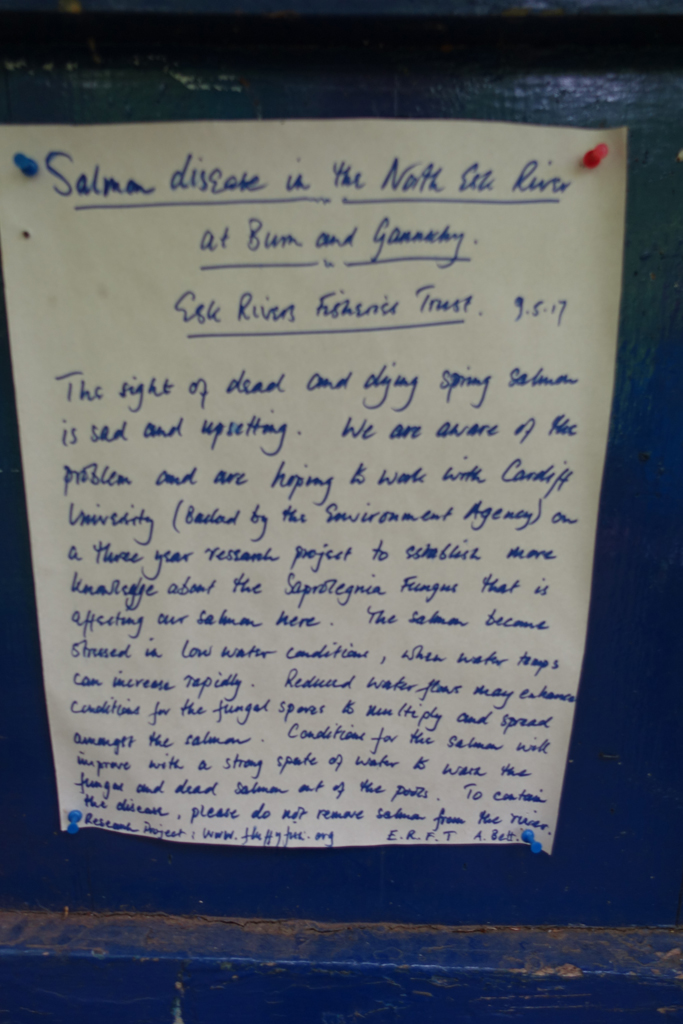 Salmon disease in the North Esk River
at Burn and Gannochy.
Esk Rivers Fisheries Trust. 9.5.17
The sight of dead and dying spring salmon
is sad and upsetting. We are aware of the
problem and are hoping to work with Cardiff
University (Backed by the Environment Agency) on
a three year research project to establish more
knowledge about the Saprolegnia Fungus that is
affecting our salmon here. The salmon become
stressed in low water conditions, when water temps
can increase rapidly. Reduced water flows may enhance
conditions for the fungal spores to multiply and spread
amongst the salmon. Conditions for the salmon will
improve with a strong spate of water to wash the
fungus and dead salmon out of the pools. To contain
the disease, please do not remove salmon from the river.
Research Project: www.fluffyfish.org E.R.F.T A. Bett.